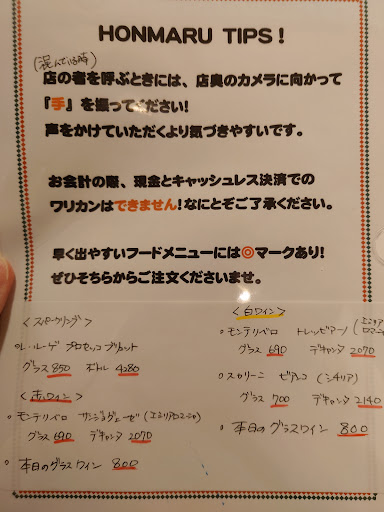 HONMARU TIPS！
(混んでいる時)
店の者を呼ぶときには、店奥のカメラに向かって
『手』を振ってください!
声をかけていただくより気づきやすいです。
お会計の際、現金とキャッシュレス決済での
ワリカンはできません!なにとぞご了承ください。
早く出やすいフードメニューには◎マークあり!
ぜひそちらからご注文くださいませ。
<スパークリング>
○ル・ルーゲ プロセッコ ブリュット
グラス 850 ボトル 4280
<赤ワイン>
○モンテリベロ サンジョヴェーゼ(エミリアロマーニャ)
グラス 690 デキャンタ 2070
○本日のグラスワイン 800
<白ワイン>
○モンテリベロ トレッビアーノ(エミリア ロマーニャ)
グラス 690 デキャンタ 2070
○スカリーニ ビアンコ (シチリア)
グラス 700 デキャンタ 2140
○本日のグラスワイン 800